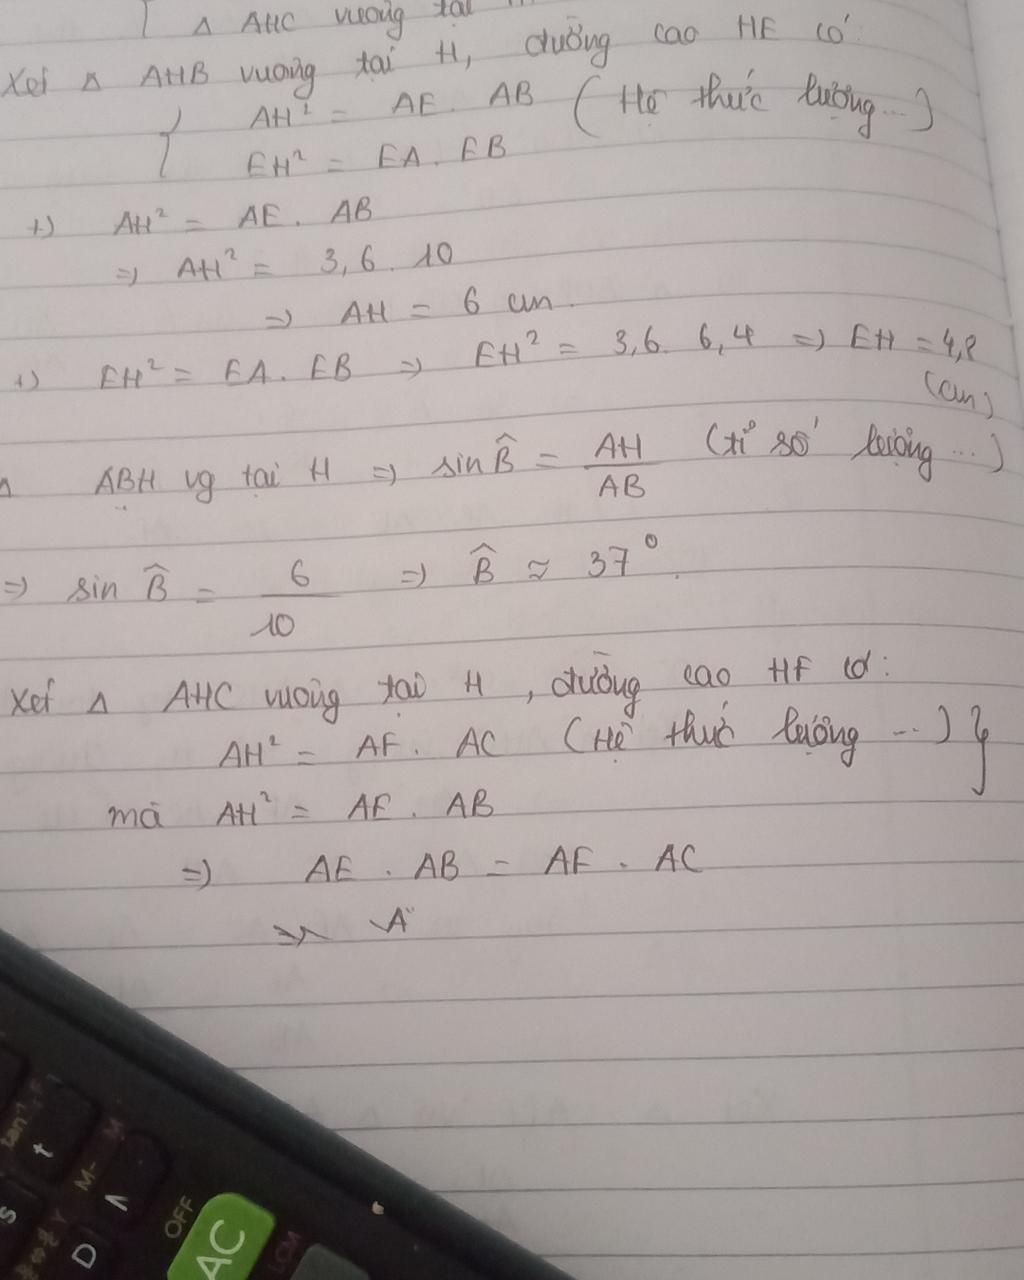 Δ AHC vuông tại
Xét Δ AHB vuông tại H, đường cao HE có
AH² = AE . AB (Hệ thức lượng...)
EH² = EA . EB
+) AH² = AE . AB
=> AH² = 3,6 . 10
=> AH = 6 cm.
+) EH² = EA . EB => EH² = 3,6 . 6,4 => EH = 4,8
(cm)
Δ ABH vg tại H => sin B̂ = AH/AB (tỉ số lượng ...)
=> sin B̂ = 6/10 => B̂ ≈ 37°.
Xét Δ AHC vuông tại H, đường cao HF có:
AH² = AF . AC (Hệ thức lượng ...) }
mà AH² = AE . AB
=> AE . AB = AF . AC
=> A
tan⁻¹ F
t
M- M
S
Y
D
OFF
AC
LCM